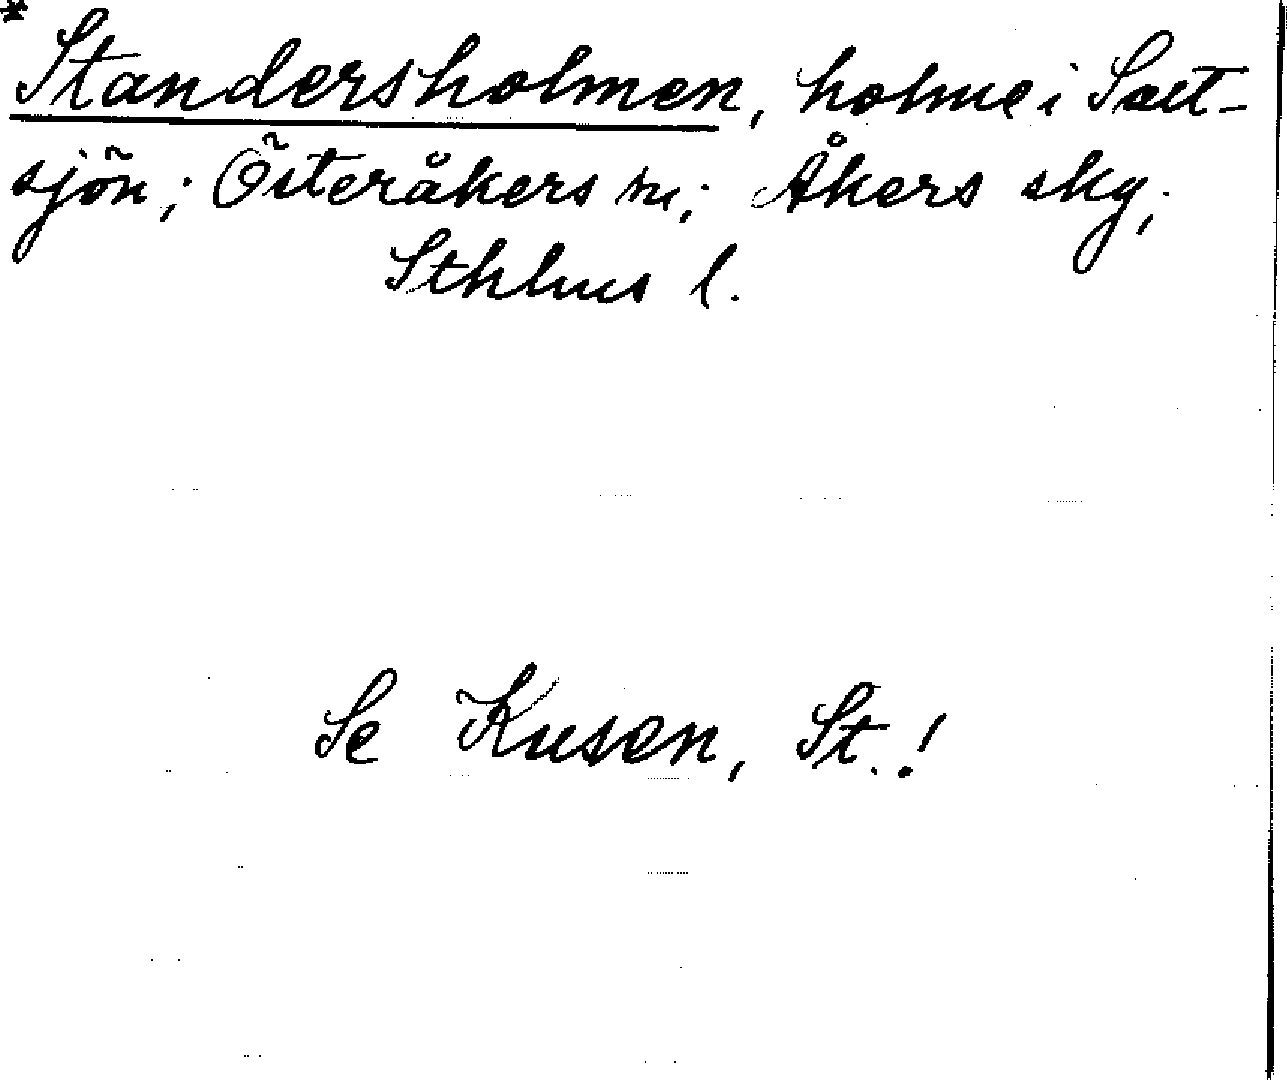 * Standersholmen, holme i Salt-
sjön; Österåkers sn; Åkers skg;
Sthlms l.
Se Kusen, St.!